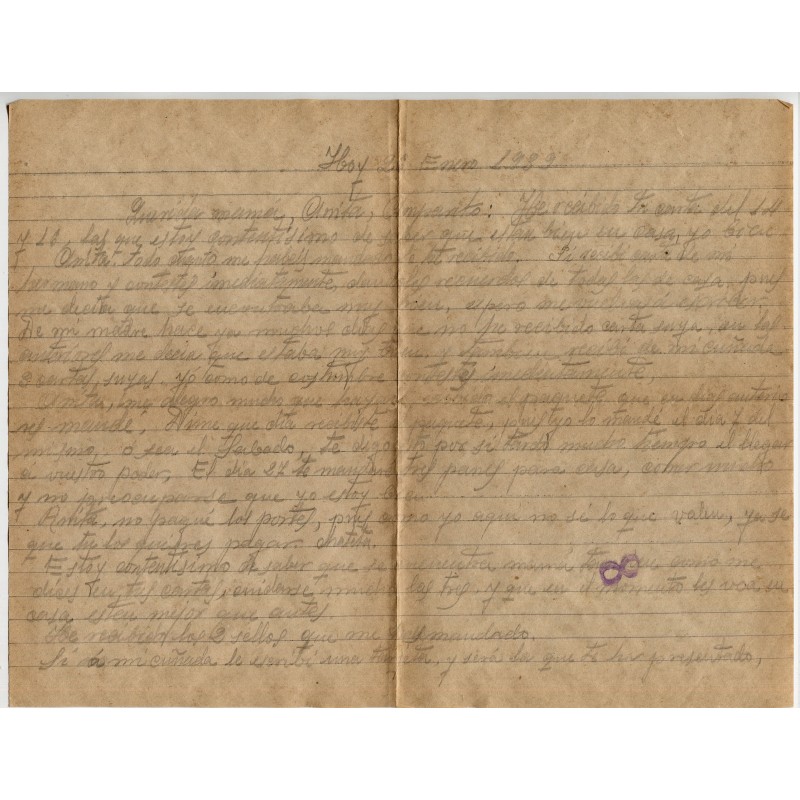 Hoy Enero 1939
Querida mama, Anita, Amparito: He recibido tu carta del 14
y 16, las que estoy contentísimo de saber que están bien en casa, yo
Anita. todo cuanto me habeis mandado lo he recibido. Si recibí carta de mi
hermano y contesté inmediatamente, recuerdos de todos los de casa, pues
me decia que se encontraba muy bien, espero me escriba
De mi madre hace ya muchos dias que no he recibido carta suya, en las
anteriores me decia que estaba muy bien, y tambien recibí de mi cuñada
2 cartas suyas. Yo como de costumbre contesté inmediatamente,
Anita, me alegro mucho que hayas recibido el paquete que en dias anterio
res mandé, Dime que dia recibiste el paquete, pues yo lo mandé el dia 7 del
mismo, o sea el Sabado, te digo esto por si tardó mucho tiempo el llegar
á vuestro poder, El dia 22 te mandaré tres panes para casa, comer mucho
y no preocuparse que yo estoy bien.
Anita, no pagué los portes, pues como yo aqui no sé lo que valen, ya sé
que tu los quieres pagar.
Estoy contentísimo de saber que se encuentra mamá bien como me
dices en tus cartas, cuidarse mucho las tres y que en el momento en
casa esten mejor que antes
He recibido los 2 sellos que me has mandado.
Si a mi cuñada le escribí una tarjeta, y será la que te ha presentado,
8